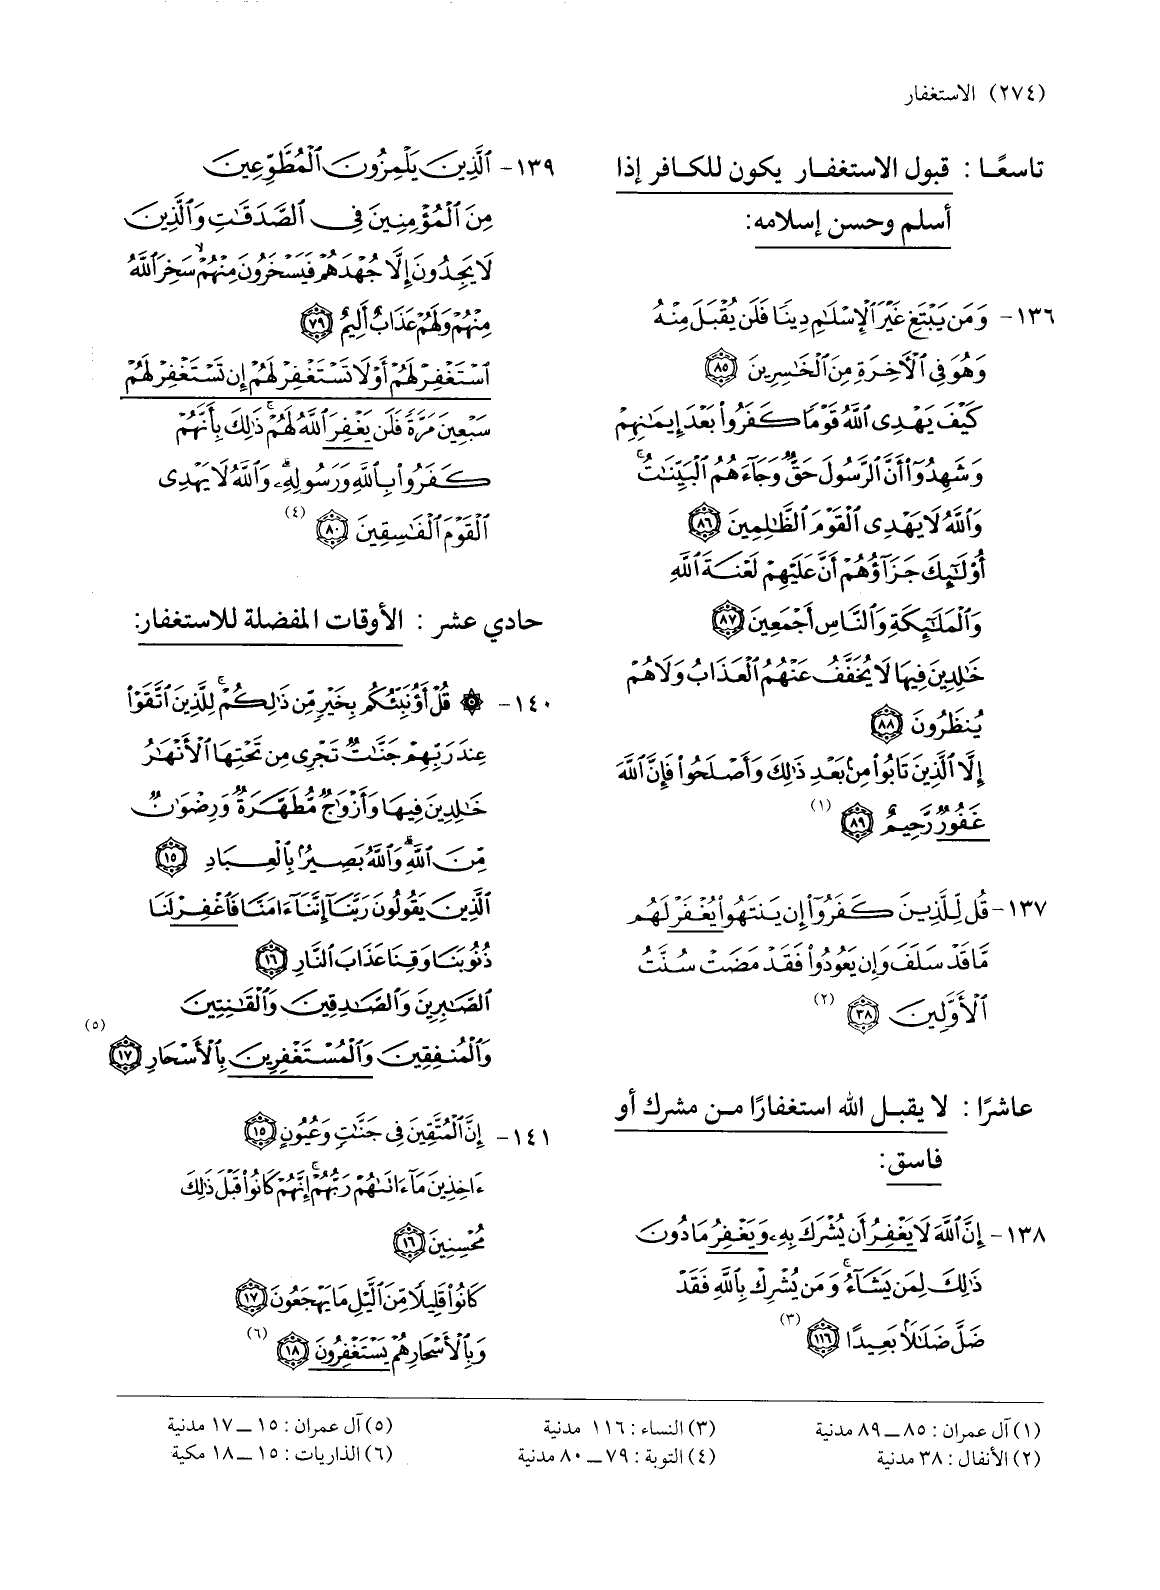 (٢٧٤) الاستغفار
تاسعًا : قبول الاستغفار يكون للكافر إذا
أسلم وحسن إسلامه:
١٣٦- وَمَن يَبْتَغِ غَيْرَ ٱلْإِسْلَٰمِ دِينًا فَلَن يُقْبَلَ مِنْهُ
وَهُوَ فِى ٱلْأَخِرَةِ مِنَ ٱلْخَٰسِرِينَ ﴿٨٥﴾
كَيْفَ يَهْدِى ٱللَّهُ قَوْمًا كَفَرُوا۟ بَعْدَ إِيمَٰنِهِمْ
وَشَهِدُوٓا۟ أَنَّ ٱلرَّسُولَ حَقٌّ وَجَآءَهُمُ ٱلْبَيِّنَٰتُ ۚ
وَٱللَّهُ لَا يَهْدِى ٱلْقَوْمَ ٱلظَّٰلِمِينَ ﴿٨٦﴾
أُو۟لَٰٓئِكَ جَزَآؤُهُمْ أَنَّ عَلَيْهِمْ لَعْنَةَ ٱللَّهِ
وَٱلْمَلَٰٓئِكَةِ وَٱلنَّاسِ أَجْمَعِينَ ﴿٨٧﴾
خَٰلِدِينَ فِيهَا لَا يُخَفَّفُ عَنْهُمُ ٱلْعَذَابُ وَلَا هُمْ
يُنظَرُونَ ﴿٨٨﴾
إِلَّا ٱلَّذِينَ تَابُوا۟ مِنۢ بَعْدِ ذَٰلِكَ وَأَصْلَحُوا۟ فَإِنَّ ٱللَّهَ
غَفُورٌ رَّحِيمٌ ﴿٨٩﴾ (١)
١٣٧- قُل لِّلَّذِينَ كَفَرُوٓا۟ إِن يَنتَهُوا۟ يُغْفَرْ لَهُم
مَّا قَدْ سَلَفَ وَإِن يَعُودُوا۟ فَقَدْ مَضَتْ سُنَّتُ
ٱلْأَوَّلِينَ ﴿٣٨﴾ (٢)
عاشرًا : لا يقبل الله استغفارًا من مشرك أو
فاسق:
١٣٨- إِنَّ ٱللَّهَ لَا يَغْفِرُ أَن يُشْرَكَ بِهِۦ وَيَغْفِرُ مَا دُونَ
ذَٰلِكَ لِمَن يَشَآءُ ۚ وَمَن يُشْرِكْ بِٱللَّهِ فَقَدْ
ضَلَّ ضَلَٰلًۢا بَعِيدًا ﴿١١٦﴾ (٣)
١٣٩- ٱلَّذِينَ يَلْمِزُونَ ٱلْمُطَّوِّعِينَ
مِنَ ٱلْمُؤْمِنِينَ فِى ٱلصَّدَقَٰتِ وَٱلَّذِينَ
لَا يَجِدُونَ إِلَّا جُهْدَهُمْ فَيَسْخَرُونَ مِنْهُمْ ۙ سَخِرَ ٱللَّهُ
مِنْهُمْ وَلَهُمْ عَذَابٌ أَلِيمٌ ﴿٧٩﴾
ٱسْتَغْفِرْ لَهُمْ أَوْ لَا تَسْتَغْفِرْ لَهُمْ إِن تَسْتَغْفِرْ لَهُمْ
سَبْعِينَ مَرَّةً فَلَن يَغْفِرَ ٱللَّهُ لَهُمْ ۚ ذَٰلِكَ بِأَنَّهُمْ
كَفَرُوا۟ بِٱللَّهِ وَرَسُولِهِۦ ۗ وَٱللَّهُ لَا يَهْدِى
ٱلْقَوْمَ ٱلْفَٰسِقِينَ ﴿٨٠﴾ (٤)
حادي عشر : الأوقات المفضلة للاستغفار:
١٤٠- ۞ قُلْ أَؤُنَبِّئُكُم بِخَيْرٍ مِّن ذَٰلِكُمْ ۚ لِلَّذِينَ ٱتَّقَوْا۟
عِندَ رَبِّهِمْ جَنَّٰتٌ تَجْرِى مِن تَحْتِهَا ٱلْأَنْهَٰرُ
خَٰلِدِينَ فِيهَا وَأَزْوَٰجٌ مُّطَهَّرَةٌ وَرِضْوَٰنٌ
مِّنَ ٱللَّهِ ۗ وَٱللَّهُ بَصِيرٌۢ بِٱلْعِبَادِ ﴿١٥﴾
ٱلَّذِينَ يَقُولُونَ رَبَّنَآ إِنَّنَآ ءَامَنَّا فَٱغْفِرْ لَنَا
ذُنُوبَنَا وَقِنَا عَذَابَ ٱلنَّارِ ﴿١٦﴾
ٱلصَّٰبِرِينَ وَٱلصَّٰدِقِينَ وَٱلْقَٰنِتِينَ
وَٱلْمُنفِقِينَ وَٱلْمُسْتَغْفِرِينَ بِٱلْأَسْحَارِ ﴿١٧﴾ (٥)
١٤١- إِنَّ ٱلْمُتَّقِينَ فِى جَنَّٰتٍ وَعُيُونٍ ﴿١٥﴾
ءَاخِذِينَ مَآ ءَاتَىٰهُمْ رَبُّهُمْ ۚ إِنَّهُمْ كَانُوا۟ قَبْلَ ذَٰلِكَ
مُحْسِنِينَ ﴿١٦﴾
كَانُوا۟ قَلِيلًا مِّنَ ٱلَّيْلِ مَا يَهْجَعُونَ ﴿١٧﴾
وَبِٱلْأَسْحَارِ هُمْ يَسْتَغْفِرُونَ ﴿١٨﴾ (٦)
(١) آل عمران : ٨٥ ــ ٨٩ مدنية
(٢) الأنفال : ٣٨ مدنية
(٣) النساء : ١١٦ مدنية
(٤) التوبة : ٧٩ ــ ٨٠ مدنية
(٥) آل عمران : ١٥ ــ ١٧ مدنية
(٦) الذاريات : ١٥ ــ ١٨ مكية